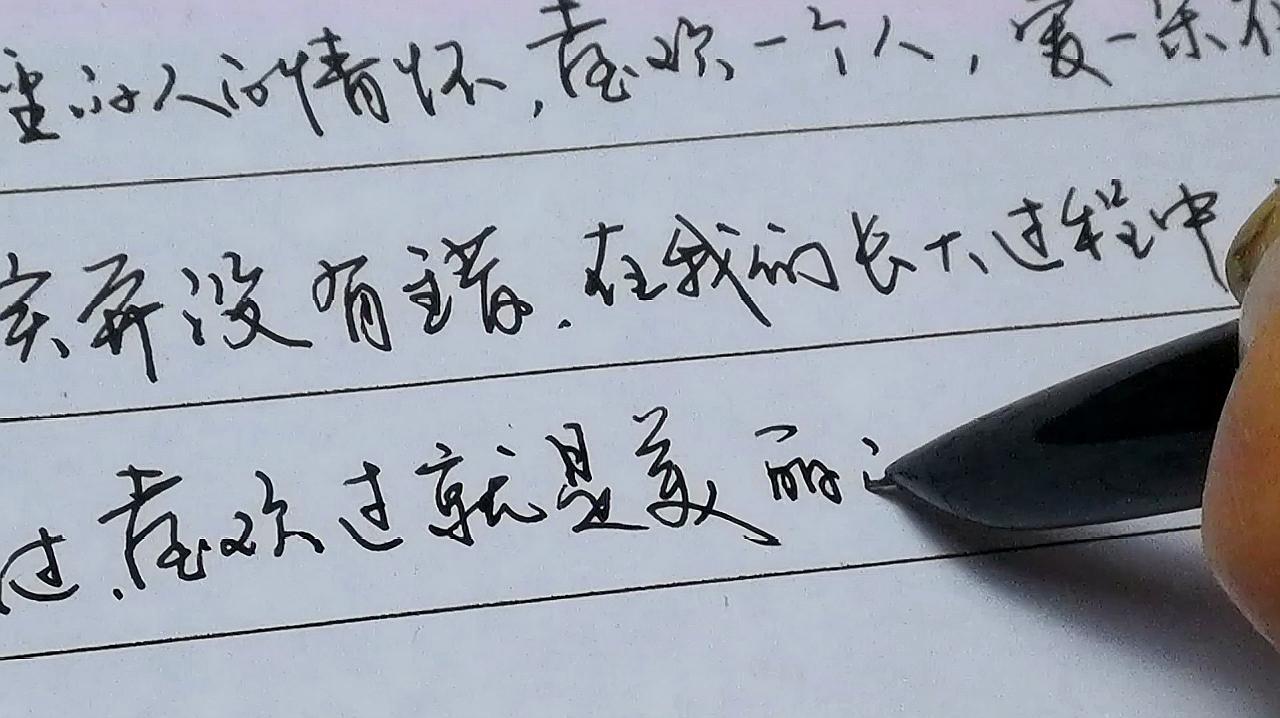 的人的情怀,喜欢一个人,爱一朵
实并没有错.在我的长大过程中
过.喜欢过就是美丽